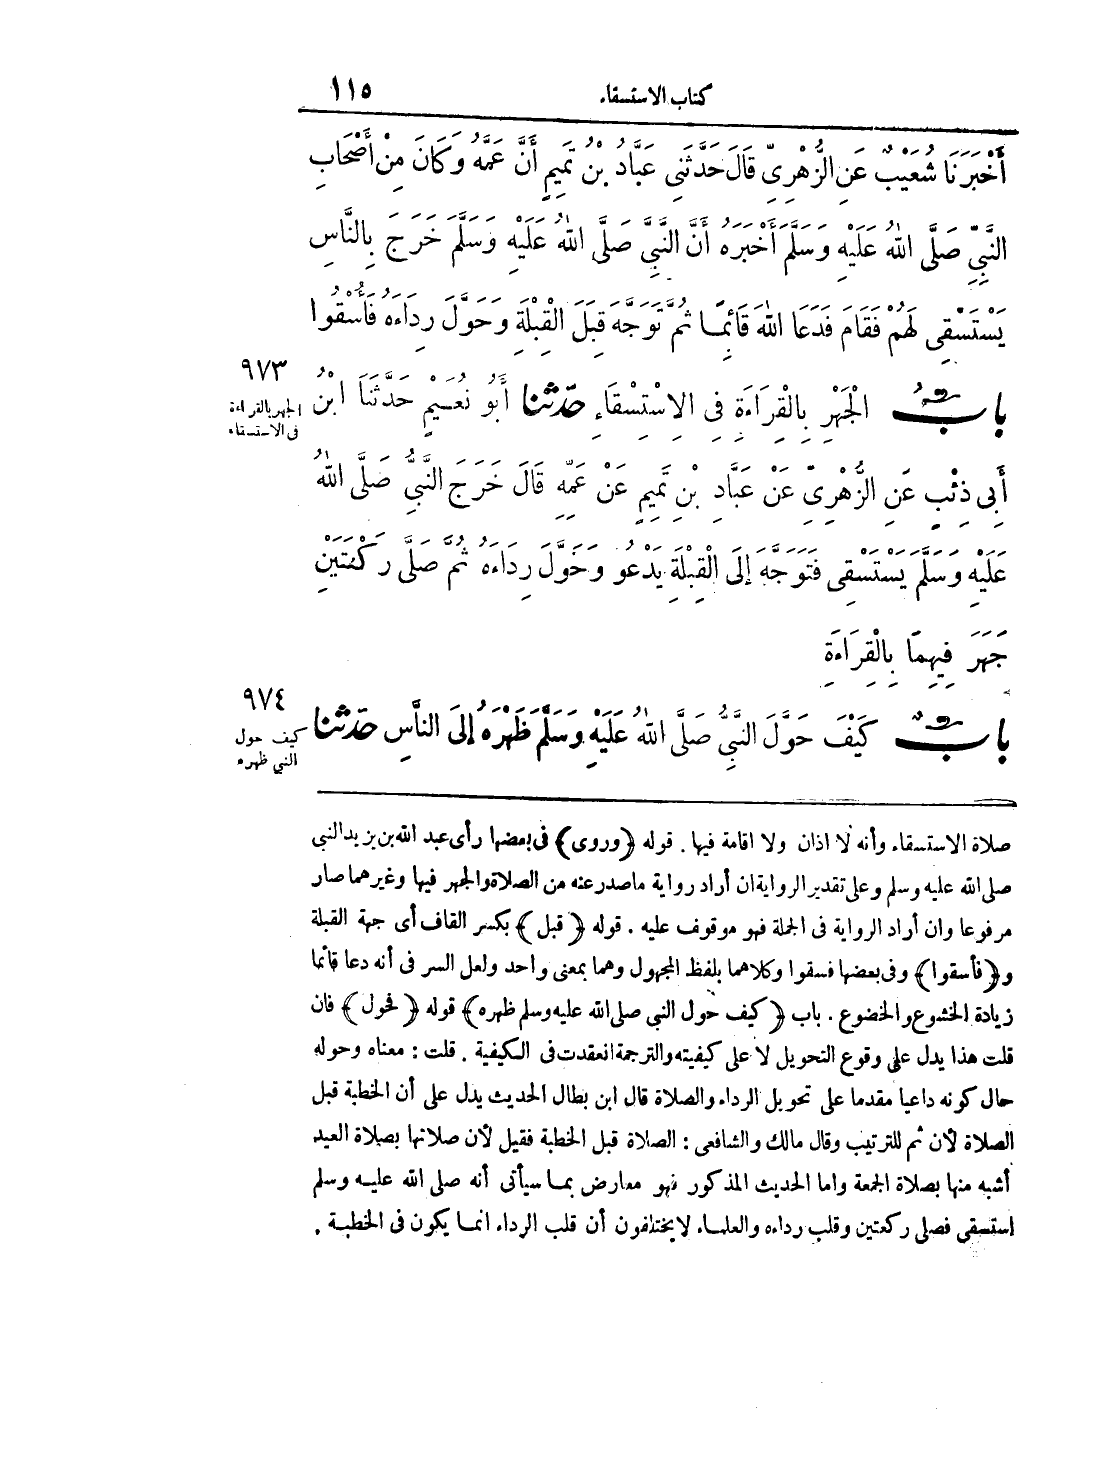 كتاب الاستسقاء ١١٥
أَخْبَرَنَا شُعَيْبٌ عَنِ الزُّهْرِىِّ قَالَ حَدَّثَنِى عَبَّادُ بْنُ تَمِيمٍ أَنَّ عَمَّهُ وَكَانَ مِنْ أَصْحَابِ
النَّبِىِّ صَلَّى اللهُ عَلَيْهِ وَسَلَّمَ أَخْبَرَهُ أَنَّ النَّبِىَّ صَلَّى اللهُ عَلَيْهِ وَسَلَّمَ خَرَجَ بِالنَّاسِ
يَسْتَسْقِى لَهُمْ فَقَامَ فَدَعَا اللهَ قَائِمًا ثُمَّ تَوَجَّهَ قِبَلَ الْقِبْلَةِ وَحَوَّلَ رِدَاءَهُ فَأُسْقُوا
٩٧٣
الجهر بالقراءة
فى الاستسقاء
بابُ الْجَهْرِ بِالْقِرَاءَةِ فِى الِاسْتِسْقَاءِ حدّثنا أَبُو نُعَيْمٍ حَدَّثَنَا ابْنُ
أَبِى ذِئْبٍ عَنِ الزُّهْرِىِّ عَنْ عَبَّادِ بْنِ تَمِيمٍ عَنْ عَمِّهِ قَالَ خَرَجَ النَّبِىُّ صَلَّى اللهُ
عَلَيْهِ وَسَلَّمَ يَسْتَسْقِى فَتَوَجَّهَ إِلَى الْقِبْلَةِ يَدْعُو وَحَوَّلَ رِدَاءَهُ ثُمَّ صَلَّى رَكْعَتَيْنِ
جَهَرَ فِيهِمَا بِالْقِرَاءَةِ
٩٧٤
كيف حول
النبي ظهره
بابٌ كَيْفَ حَوَّلَ النَّبِىُّ صَلَّى اللهُ عَلَيْهِ وَسَلَّمَ ظَهْرَهُ إِلَى النَّاسِ حدّثنا
صلاة الاستسقاء وأنه لا اذان ولا اقامة فيها. قوله ﴿وروى﴾ فى بعضها رأى عبد الله بن زيد النبي
صلى الله عليه وسلم وعلى تقدير الرواية ان أراد رواية ماصدر عنه من الصلاة والجهر فيها وغيرهما صار
مرفوعا وان أراد الرواية فى الجملة فهو موقوف عليه. قوله ﴿قبل﴾ بكسر القاف أى جهة القبلة
و﴿فأسقوا﴾ وفى بعضها فسقوا وكلاهما بلفظ المجهول وهما بمعنى واحد ولعل السر فى أنه دعا قائما
زيادة الخشوع والخضوع. باب ﴿كيف حول النبي صلى الله عليه وسلم ظهره﴾ قوله ﴿فحول﴾ فان
قلت هذا يدل على وقوع التحويل لا على كيفيته والترجمة انعقدت فى الكيفية. قلت: معناه وحوله
حال كونه داعيا مقدما على تحويل الرداء والصلاة قال ابن بطال الحديث يدل على أن الخطبة قبل
الصلاة لأن ثم للترتيب وقال مالك والشافعى: الصلاة قبل الخطبة فقيل لأن صلاتها بصلاة العيد
أشبه منها بصلاة الجمعة واما الحديث المذكور فهو معارض بما سيأتى أنه صلى الله عليه وسلم
استسقى فصلى ركعتين وقلب رداءه والعلماء لايختلفون أن قلب الرداء انما يكون فى الخطبة.